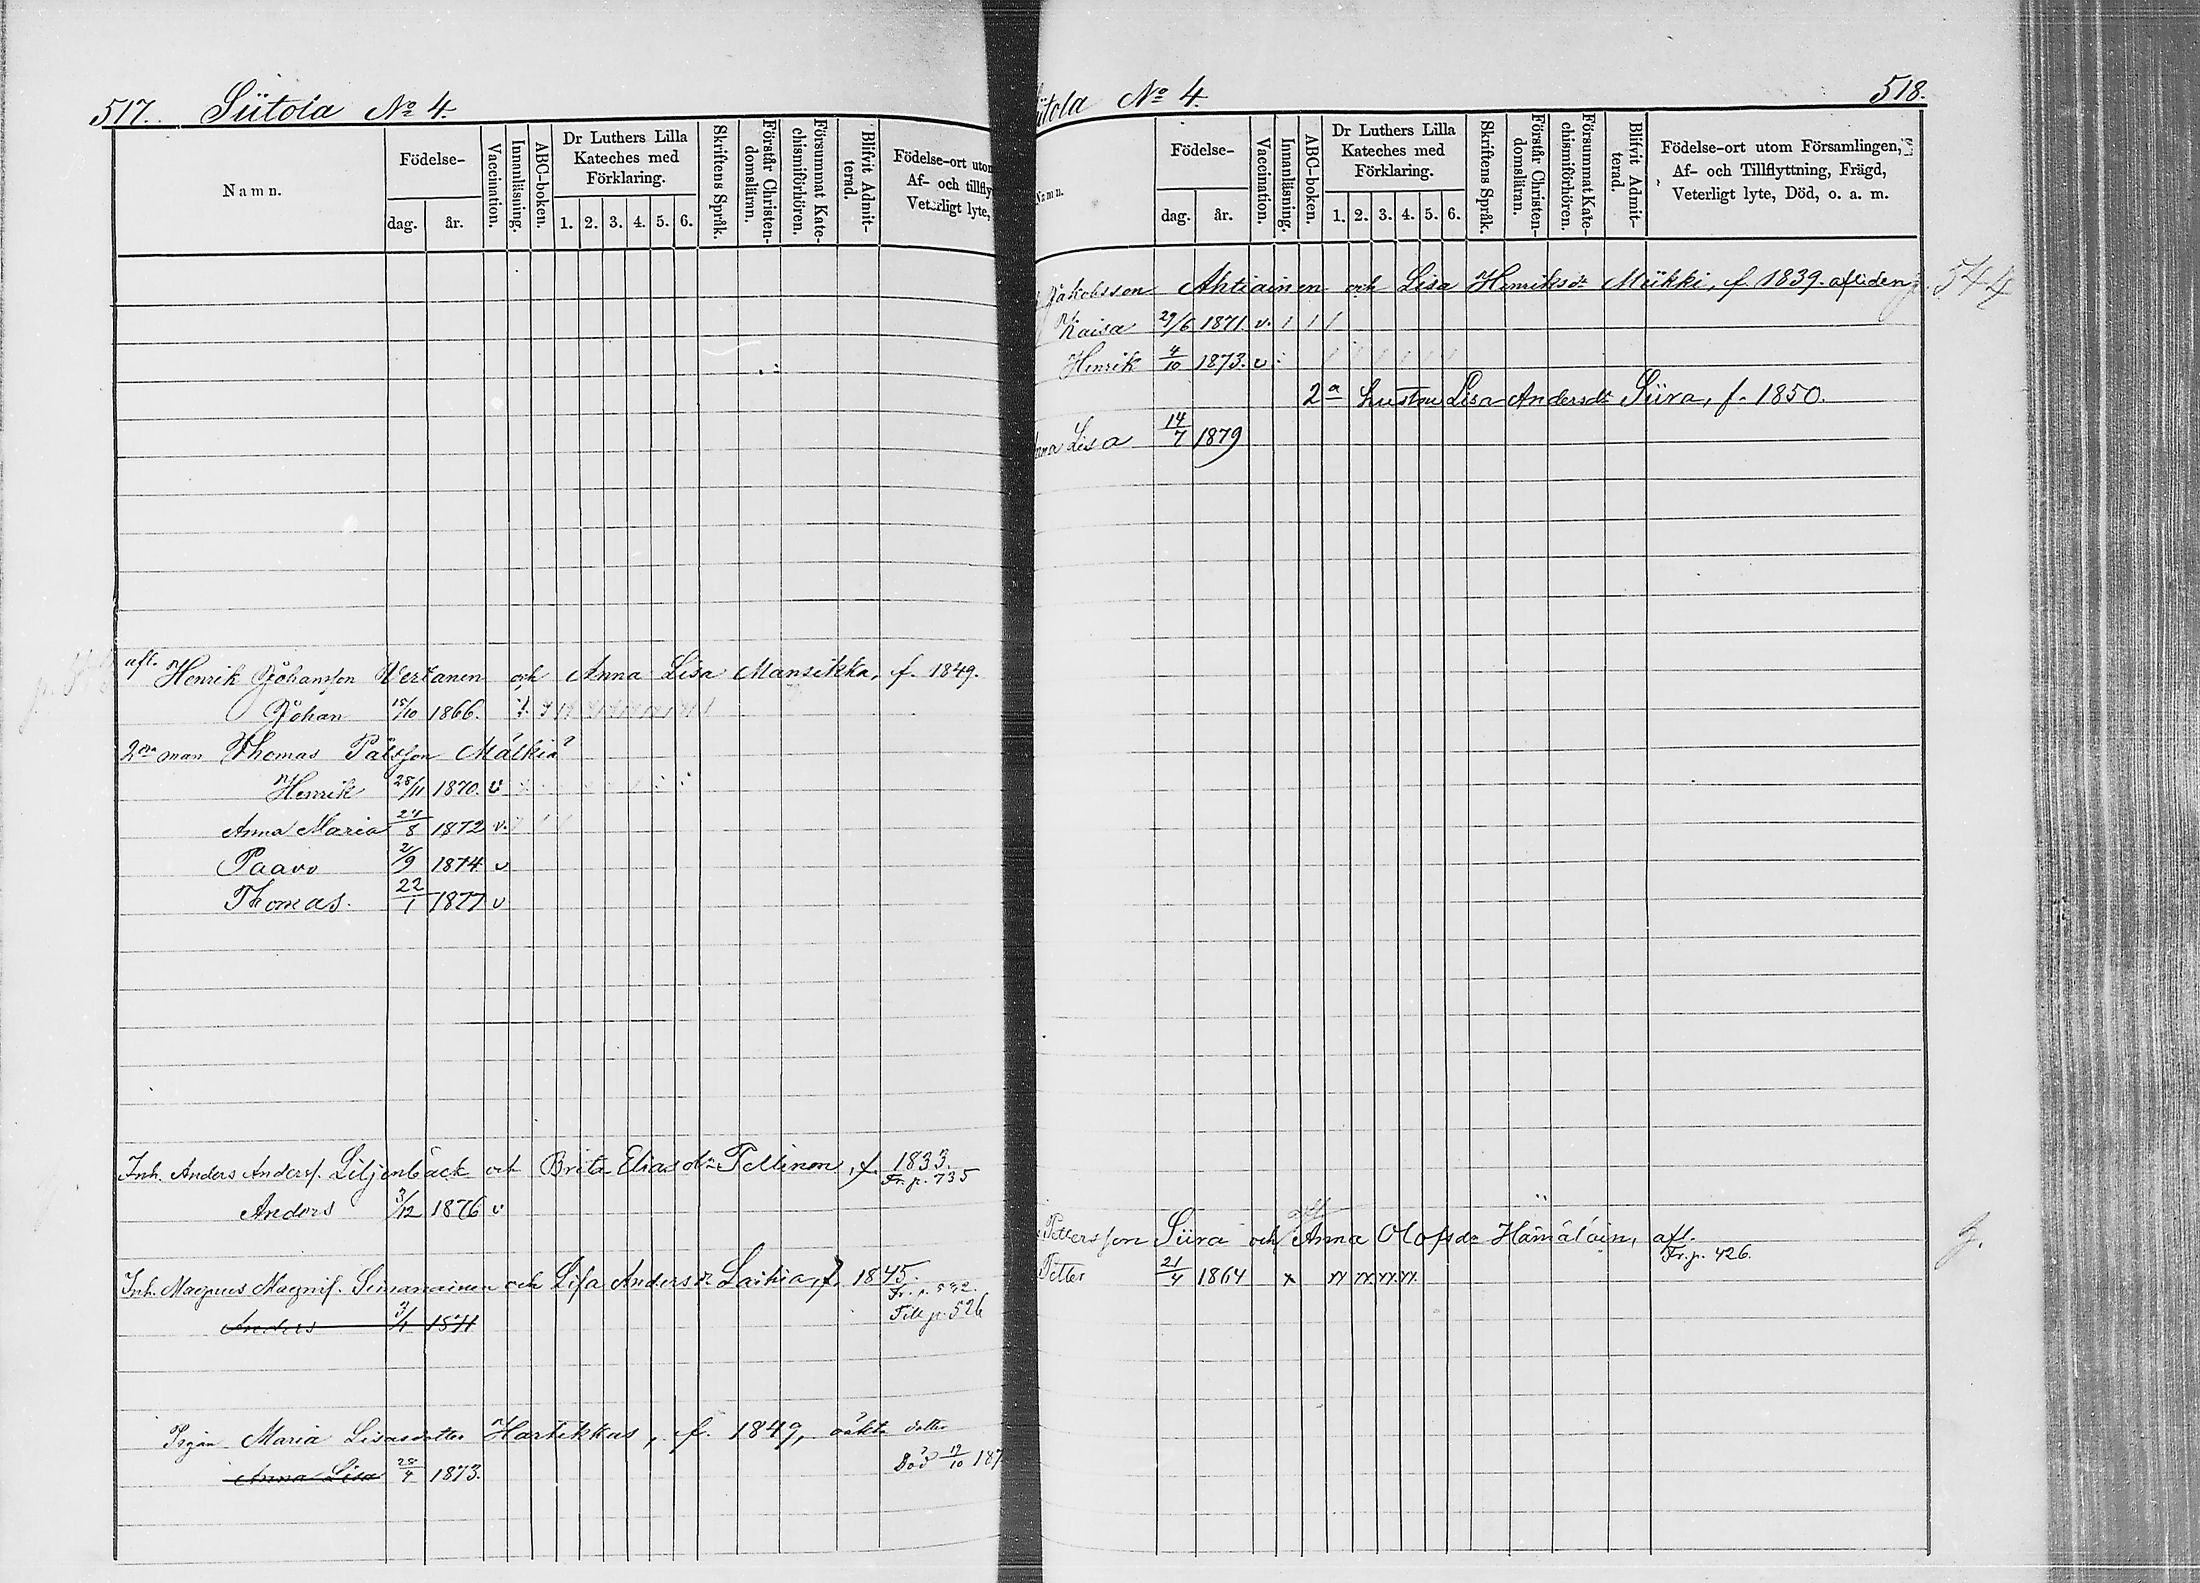 517. Siitola No 4.
Namn.
Födelse-
dag.
år.
Vaccination.
Innanläsning.
ABC-boken.
Dr Luthers Lilla
Kateches med
Förklaring.
1. 2. 3. 4. 5. 6.
Skriftens Språk.
Förstår Christen-
domsläran.
Försummat Kate-
chismiförhören.
Blifvit Admit-
terad.
Födelse-ort utom
Af- och tillfly
Veterligt lyte,
afl. Henrik Johansson Vertanen och Anna Lisa Mansikka, f. 1849.
Johan 15/10 1866.
2dra man Thomas Pålsson Mälkiä
Henrik 28/11 1870. v
Anna Maria 24/8 1872 v.
Paavo 2/9 1874 v
Thomas. 22/1 1877 v
Inh. Anders Anders. Liljenbäck och Brita Eliasdr Pellinen, f. 1833.
Fr. p. 735
Anders 3/12 1876 v
Inh. Magnus Magnis. Simanainen och Lisa Andersdr Laikia, f. 1845.
Fr. p. 532.
Anders 3/1 1871
Till p. 526
Pigan Maria Lisasdotter Hartikkas, f. 1849, oäkta dotter
Anna Lisa 28/4 1873.
Död 19/10 187
itola No 4. 518.
Namn.
Födelse-
dag.
år.
Vaccination.
Innanläsning.
ABC-boken.
Dr Luthers Lilla
Kateches med
Förklaring.
1. 2. 3. 4. 5. 6.
Skriftens Språk.
Förstår Christen-
domsläran.
Försummat Kate-
chismiförhören.
Blifvit Admit-
terad.
Födelse-ort utom Församlingen,
Af- och Tillflyttning, Frägd,
Veterligt lyte, Död, o. a. m.
Jakobsson Ahtiainen och Lisa Henriksdr Miikki, f. 1839. afliden 544
Kaisa 29/6 1871 v.
Henrik 4/10 1873. v
2a hustru Lisa Andersdr Siira, f. 1850.
nna Lisa 14/7 1879
Pettersson Siira och Anna Olofsdr Hämäläin, afl.
Fr. p. 426.
Petter 21/4 1864 x